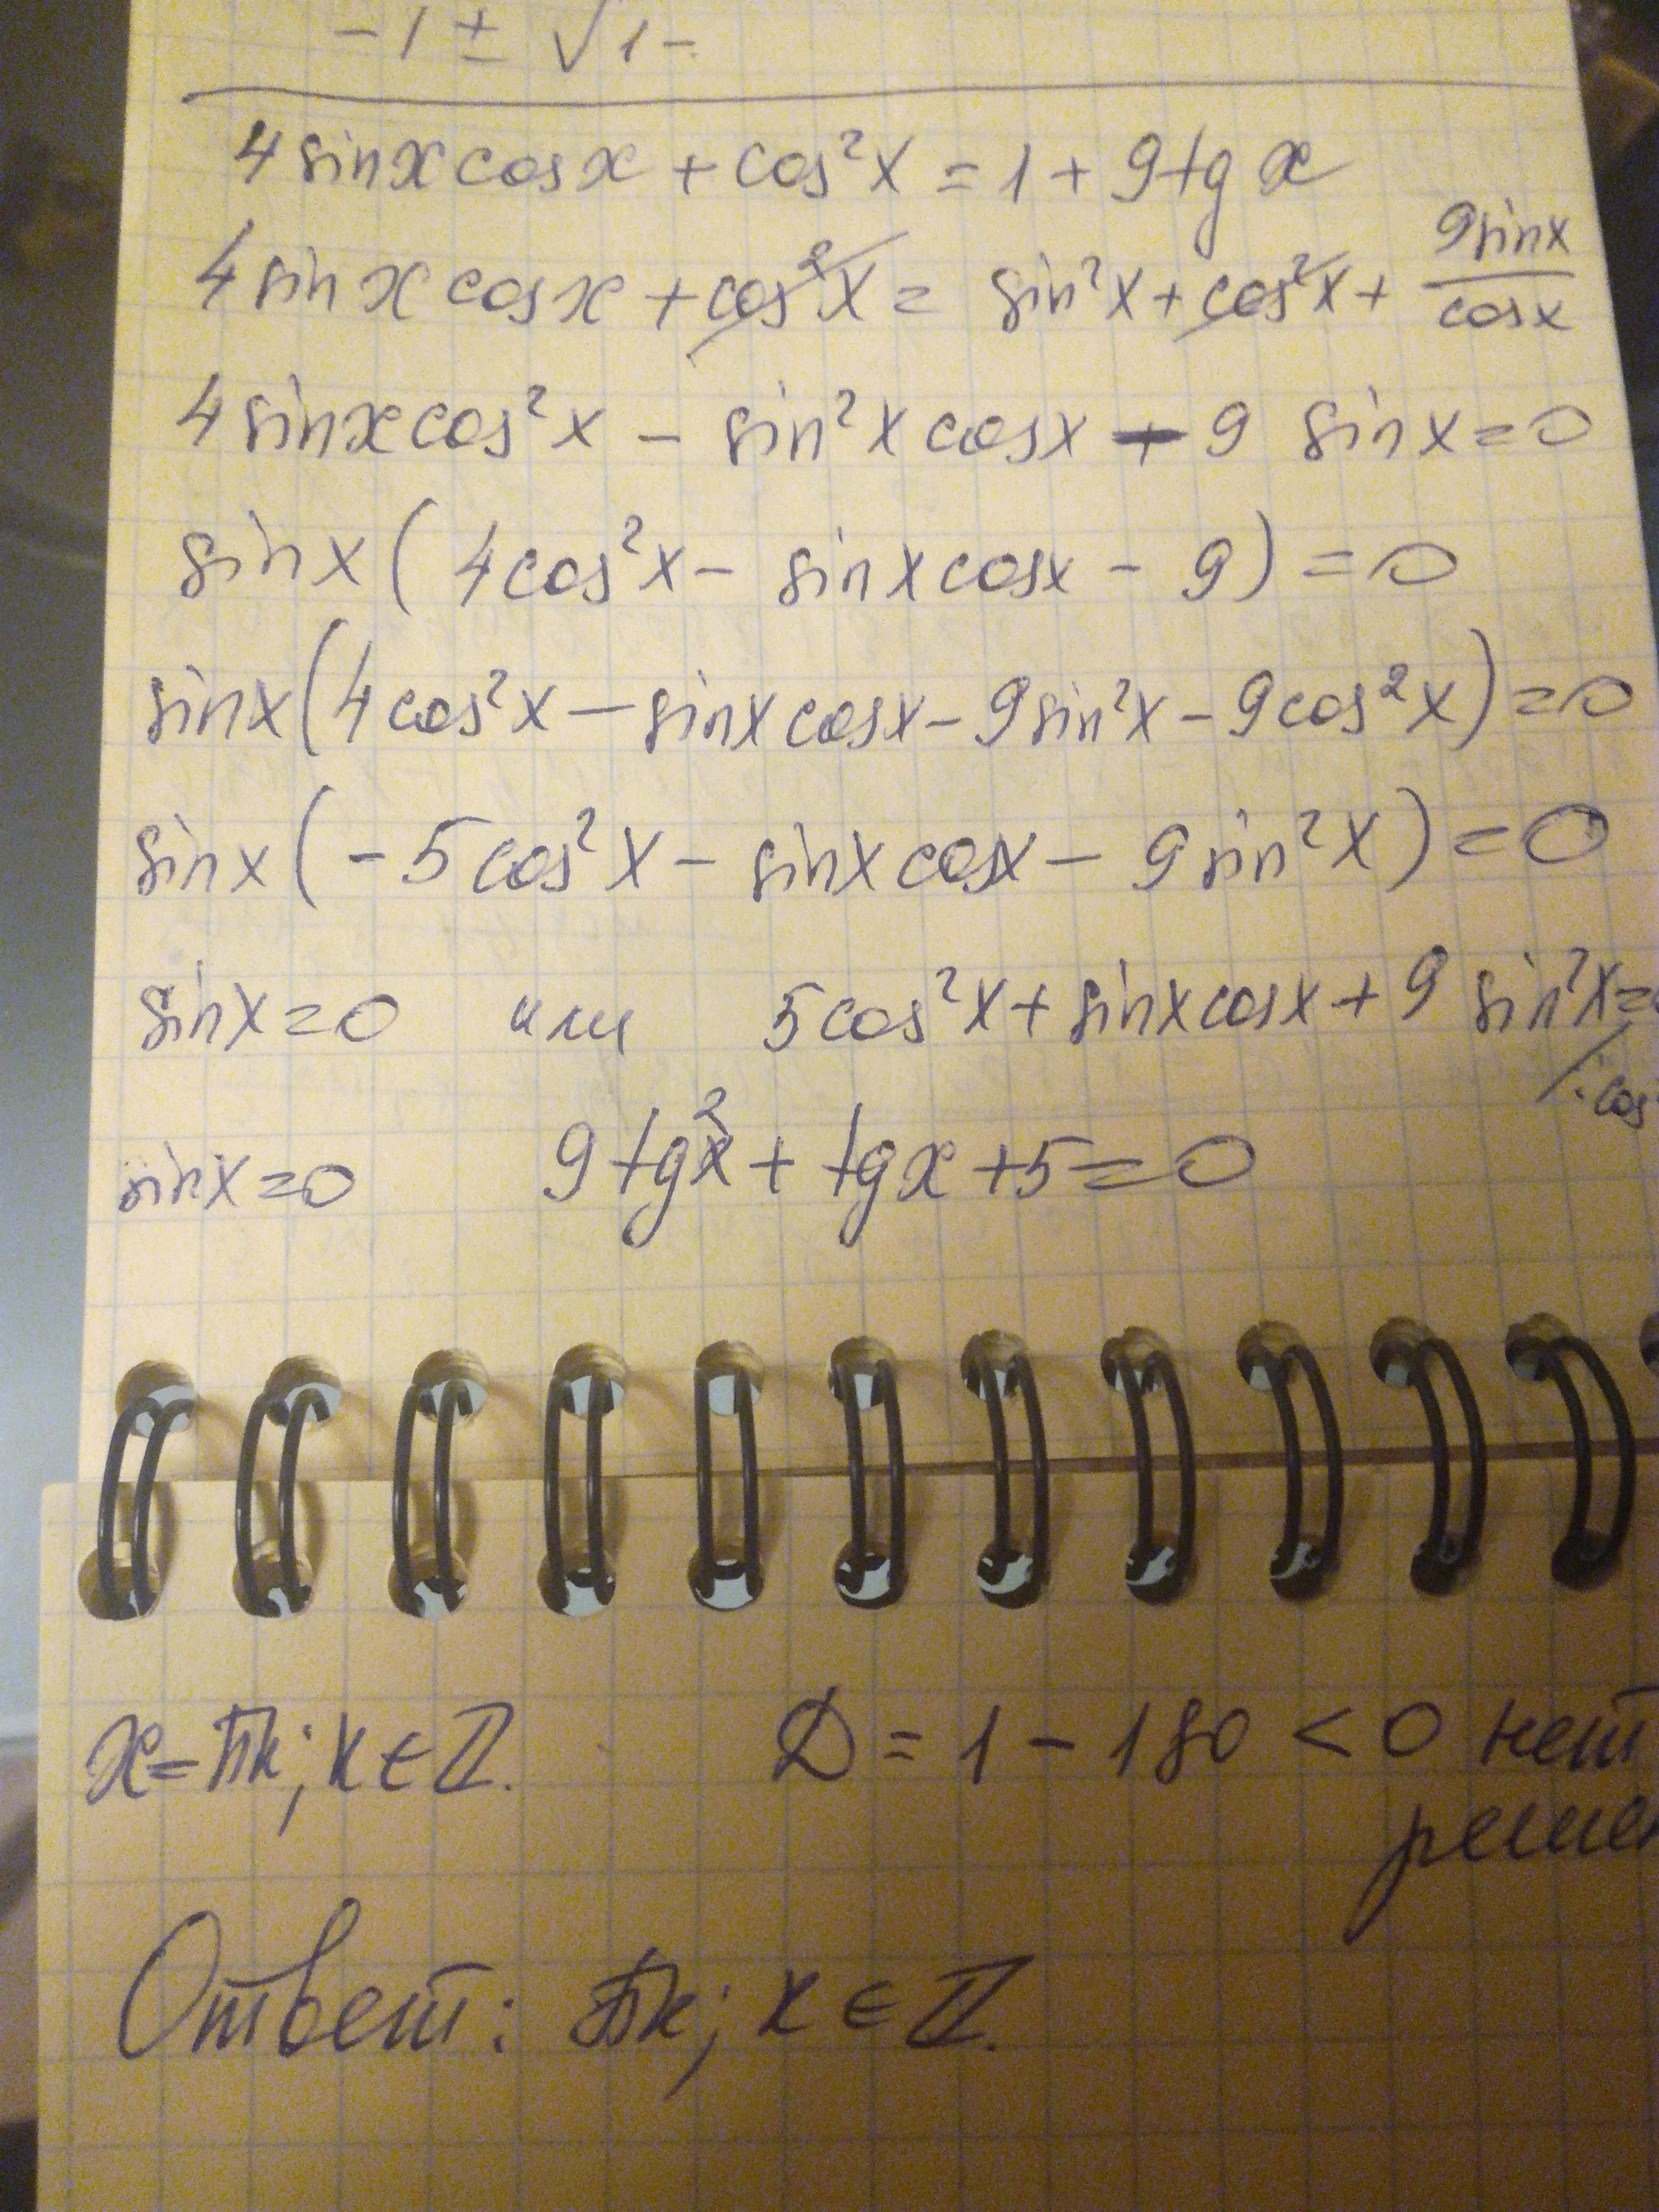 -1 ± √1-
4 sin x cos x + cos²x = 1 + 9 tg x
4 sin x cos x + cos²x = sin²x + cos²x + 9 sin x / cos x
4 sin x cos²x - sin²x cos x - 9 sin x = 0
sin x (4 cos²x - sin x cos x - 9) = 0
sin x (4 cos²x - sin x cos x - 9 sin²x - 9 cos²x) = 0
sin x (-5 cos²x - sin x cos x - 9 sin²x) = 0
sin x = 0 или 5 cos²x + sin x cos x + 9 sin²x =
/: cos
sin x = 0 9 tg²x + tg x + 5 = 0
x = πk; k ∈ Z. D = 1 - 180 < 0 нет
решен
Ответ: πk; k ∈ Z.